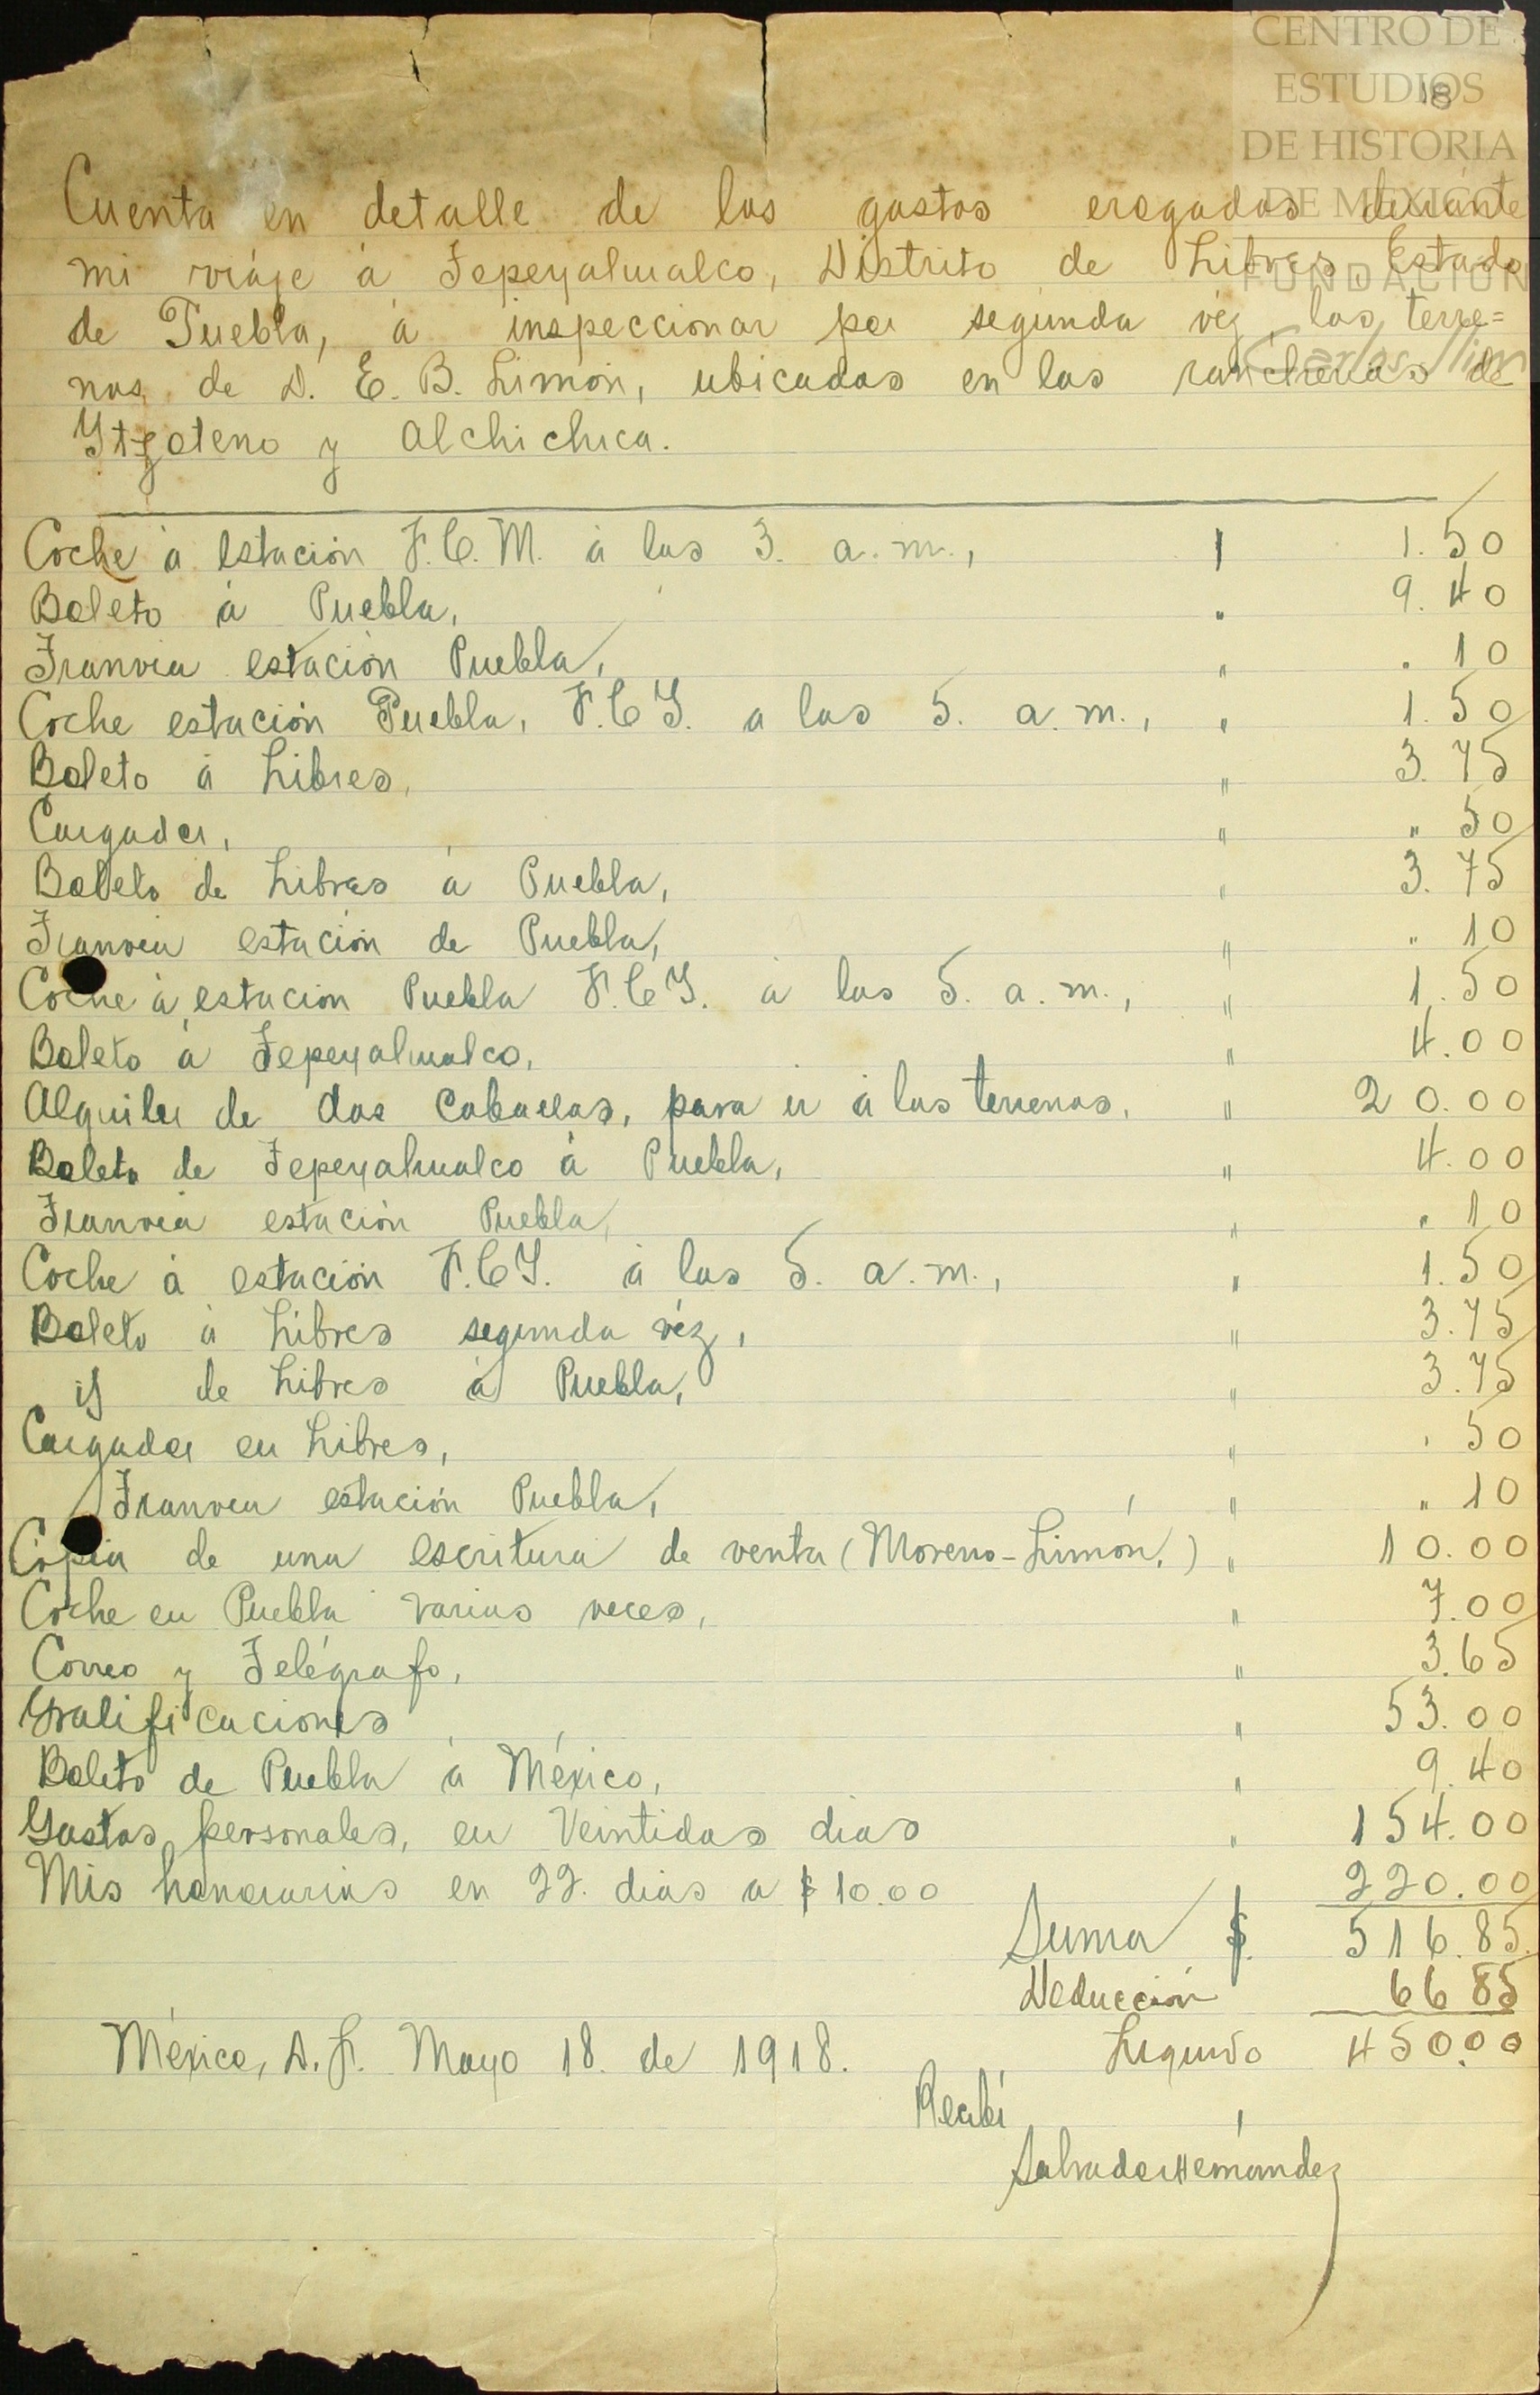 CENTRO DE
ESTUDIOS
DE HISTORIA
DE MEXICO
FUNDACION
Carlos Slim
18
Cuenta en detalle de los gastos erogados durante
mi viáje á Tepeyahualco, Distrito de Libres, Estado
de Puebla, á inspeccionar por segunda véz, los terre=
nos, de D. E. B. Limón, ubicados en las rancherias de
Ytzoteno y Alchichica.
Coche á estación F.C.M. á las 3. a.m., $ 1.50
Boleto á Puebla, " 9.40
Tranvia estación Puebla, " . 10
Coche estación Puebla, F.C.Y. a las 5. a.m., " 1.50
Boleto á Libres, " 3.75
Cargador, " " 50
Boleto de Libres á Puebla, " 3.75
Tranvia estación de Puebla, " " 10
Coche á estación Puebla F.C.Y. á las 5. a.m., " 1.50
Boleto á Tepeyahualco, " 4.00
Alquiler de dos caballos, para ir á los terrenos, " 20.00
Boleto de Tepeyahualco á Puebla, " 4.00
Tranvia estación Puebla, " " 10
Coche á estación F.C.Y. á las 5. a.m., " 1.50
Boleto á Libres segunda véz, " 3.75
id de Libres á Puebla, " 3.75
Cargador en Libres, " . 50
Tranvia estación Puebla, " " 10
Cópia de una escritura de venta (Moreno-Limón,) " 10.00
Coche en Puebla varias veces, " 7.00
Correo y Telégrafo, " 3.65
Gratificaciones " 53.00
Boleto de Puebla á México, " 9.40
Gastos personales, en Veintidos dias " 154.00
Mis honorarios en 22. dias a $10.00 220.00
Suma $ 516.85.
Deducción 66 85
Liquido 450.00
México, D. F. Mayo 18. de 1918.
Recibí
Salvador Hernández